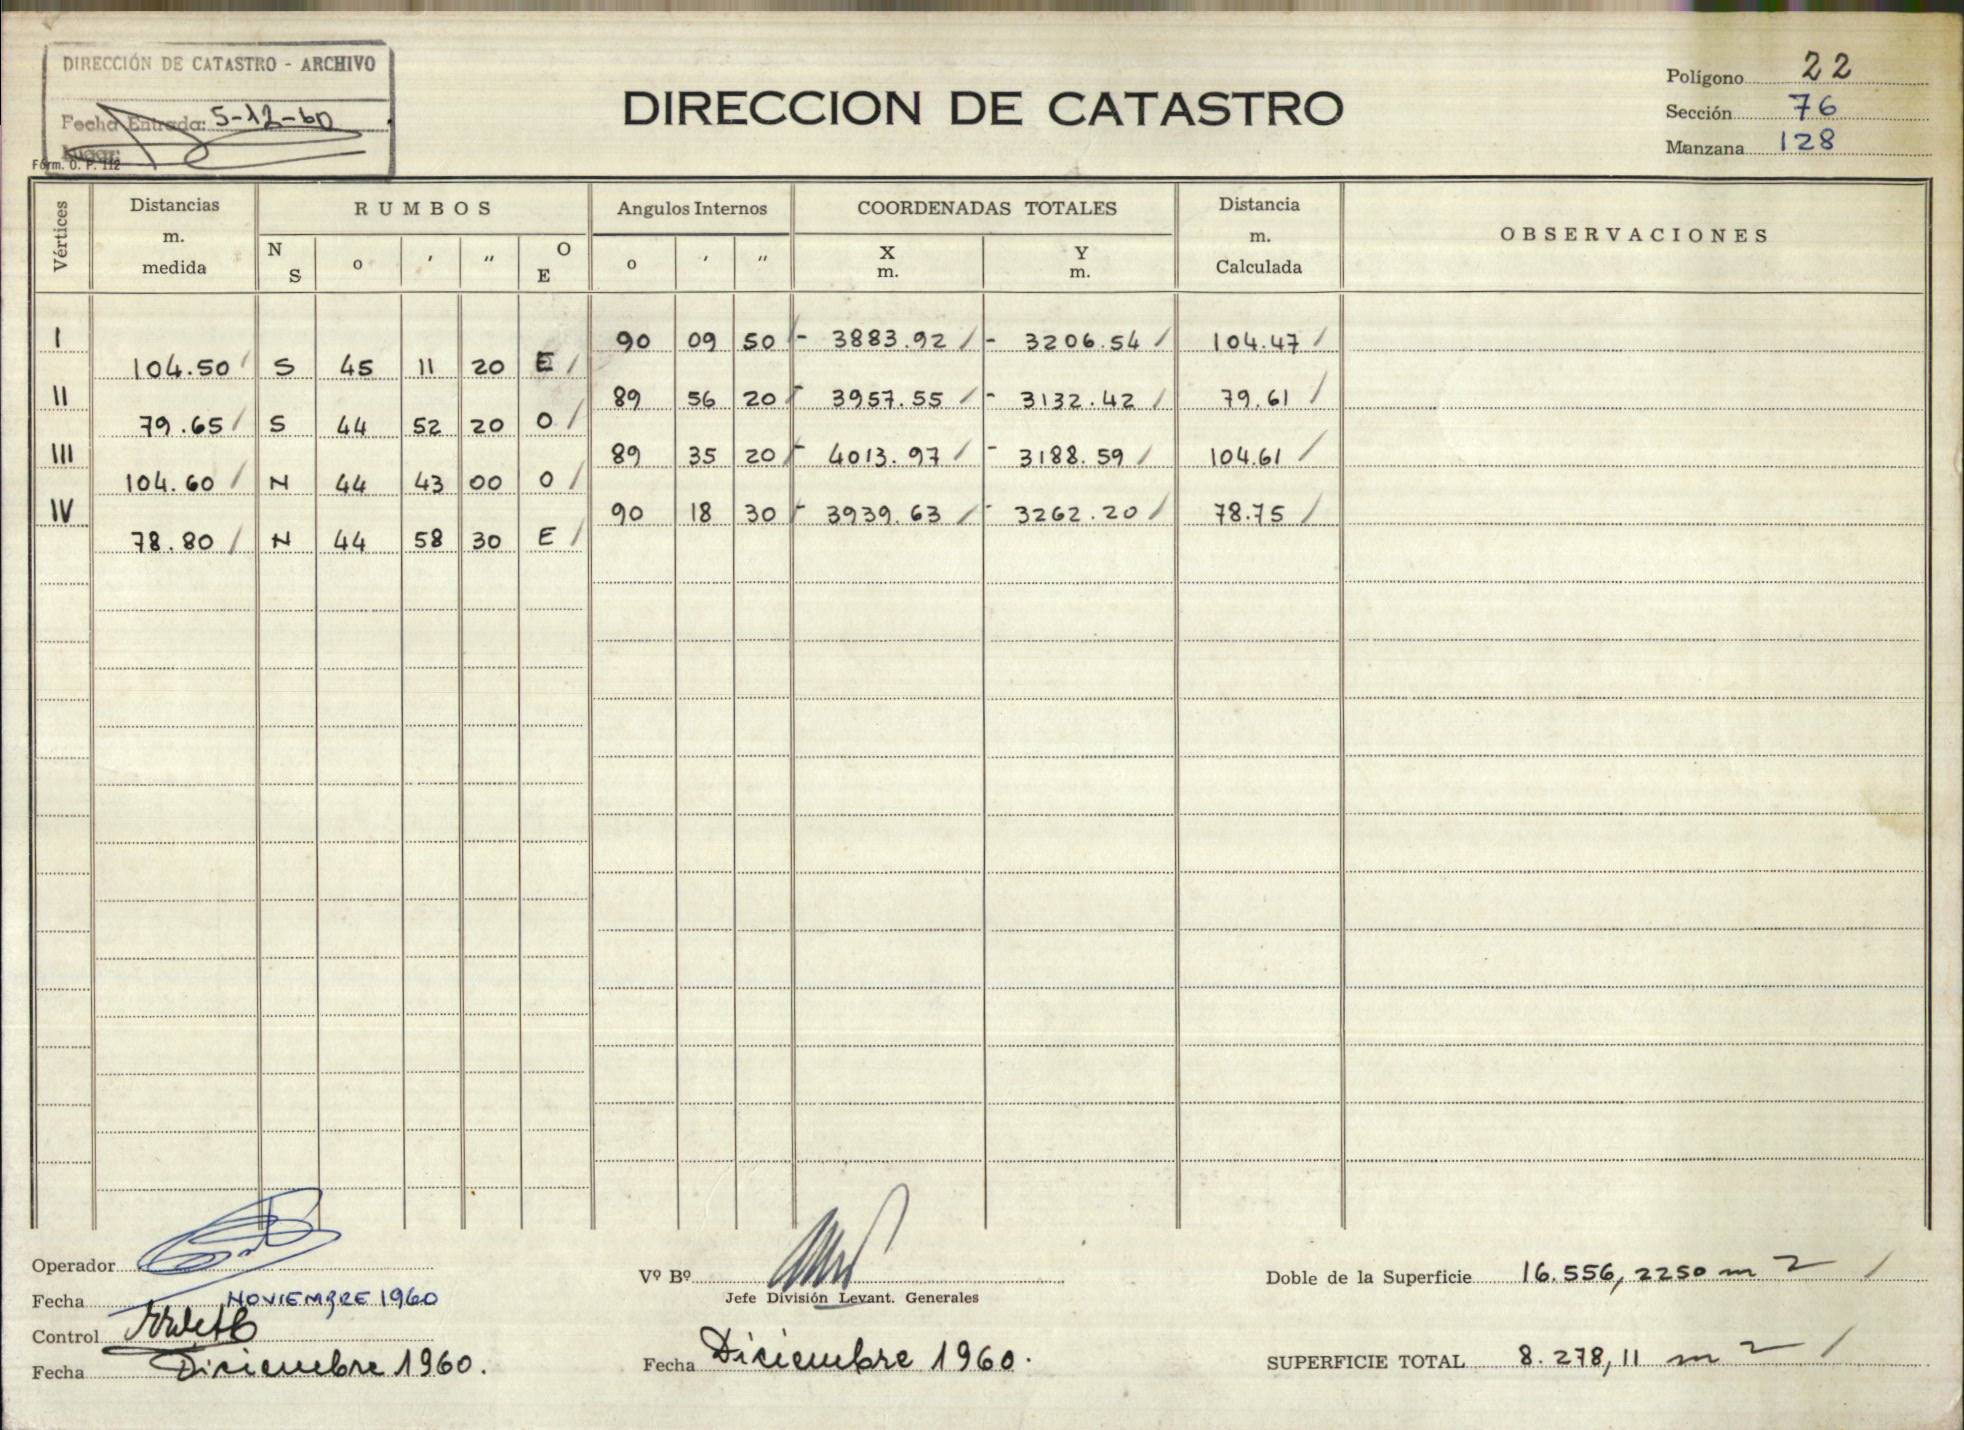 DIRECCIÓN DE CATASTRO - ARCHIVO
Fecha Entrada: 5-12-60
Lugar:
Form. O. P. 112
DIRECCION DE CATASTRO
Polígono 22
Sección 76
Manzana 128
Vértices Distancias m. medida RUMBOS Angulos Internos COORDENADAS TOTALES Distancia m. Calculada OBSERVACIONES
N S o ′ ″ O E o ′ ″ X m. Y m.
I 90 09 50 - 3883.92 - 3206.54 104.47
104.50 S 45 11 20 E
II 89 56 20 - 3957.55 - 3132.42 79.61
79.65 S 44 52 20 O
III 89 35 20 - 4013.97 - 3188.59 104.61
104.60 N 44 43 00 O
IV 90 18 30 - 3939.63 - 3262.20 78.75
78.80 N 44 58 30 E
Operador
Fecha NOVIEMBRE 1960
Control
Fecha Diciembre 1960.
Vº Bº
Jefe División Levant. Generales
Fecha Diciembre 1960.
Doble de la Superficie 16.556,2250 m 2
SUPERFICIE TOTAL 8.278,11 m 2